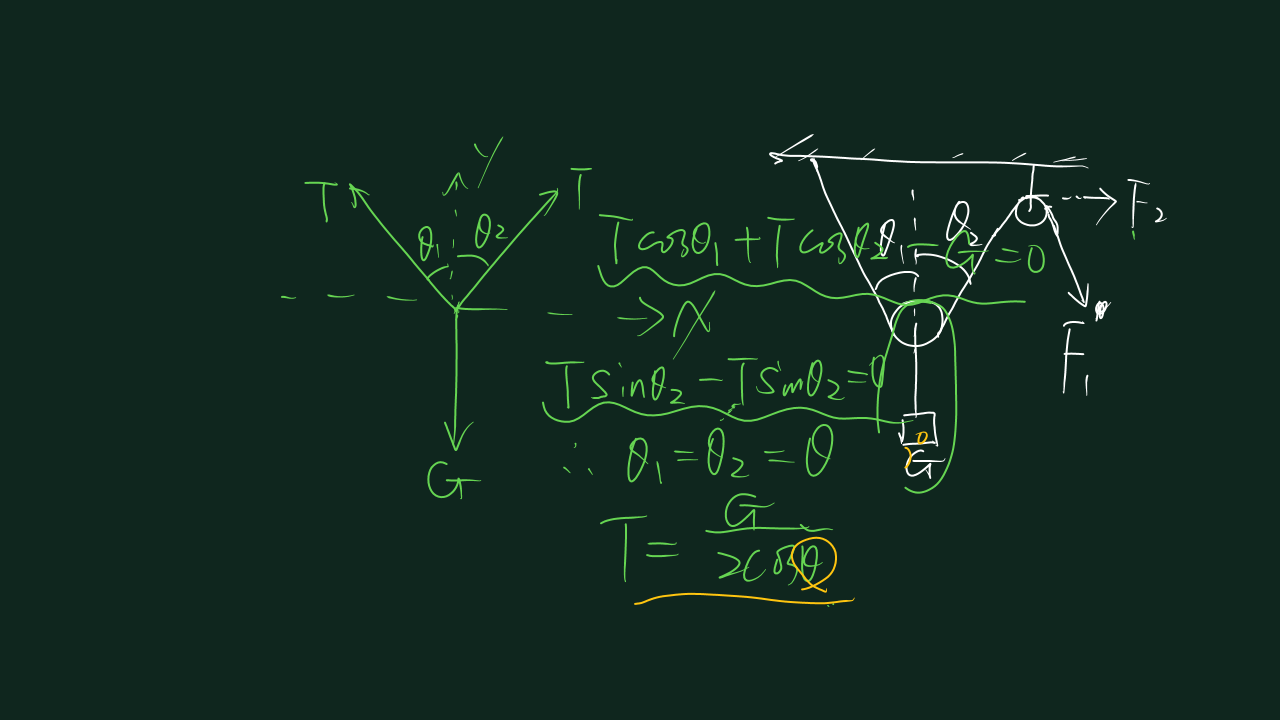 y
T
T
θ₁
θ₂
x
G
Tcosθ₁+Tcosθ₂-G=0
Tsinθ₂-Tsinθ₂=0
∴ θ₁=θ₂=θ
T=G/2cosθ
θ₁
θ₂
F₂
F₁
G